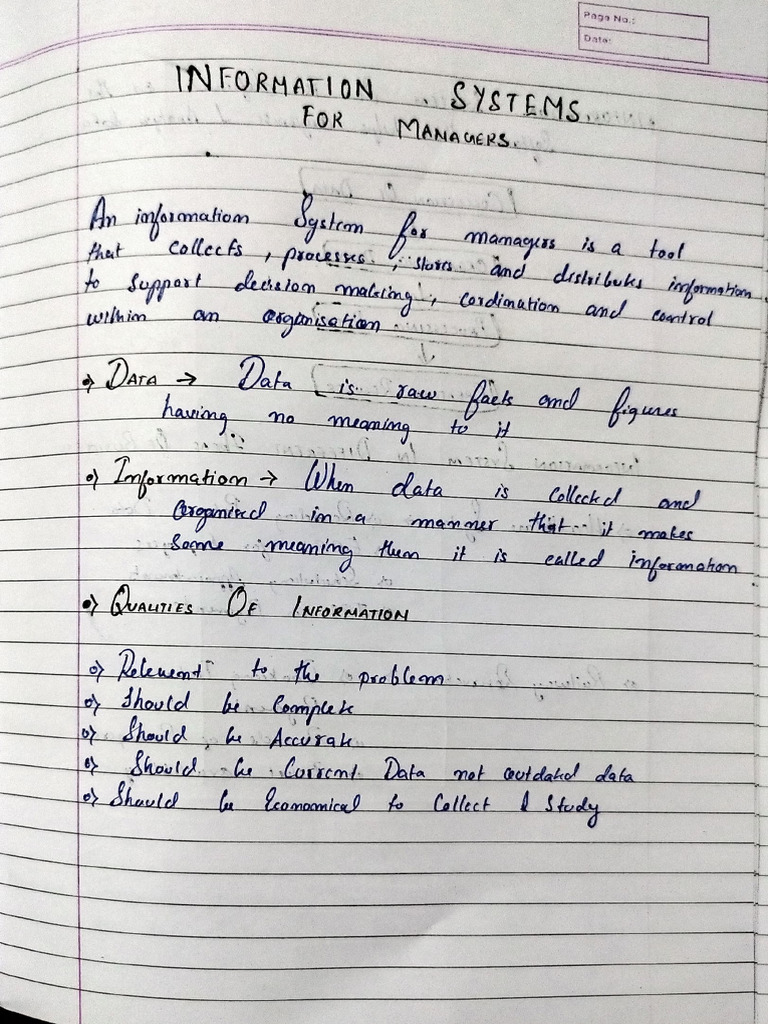 Page No.:
Date:
INFORMATION SYSTEMS
FOR MANAGERS.
An information System for managers is a tool
that collects, processes, stores and distributes information
to support decision making, cordination and control
within an organisation
•) DATA → Data is raw facts and figures
having no meaning to it
•) Information → When data is collected and
Organised in a manner that it makes
Some meaning then it is called information
•) QUALITIES OF INFORMATION
•) Relevent to the problem
•) Should be Complete
•) Should be Accurate
•) Should be Current Data not outdated data
•) Should be Economical to Collect & Study